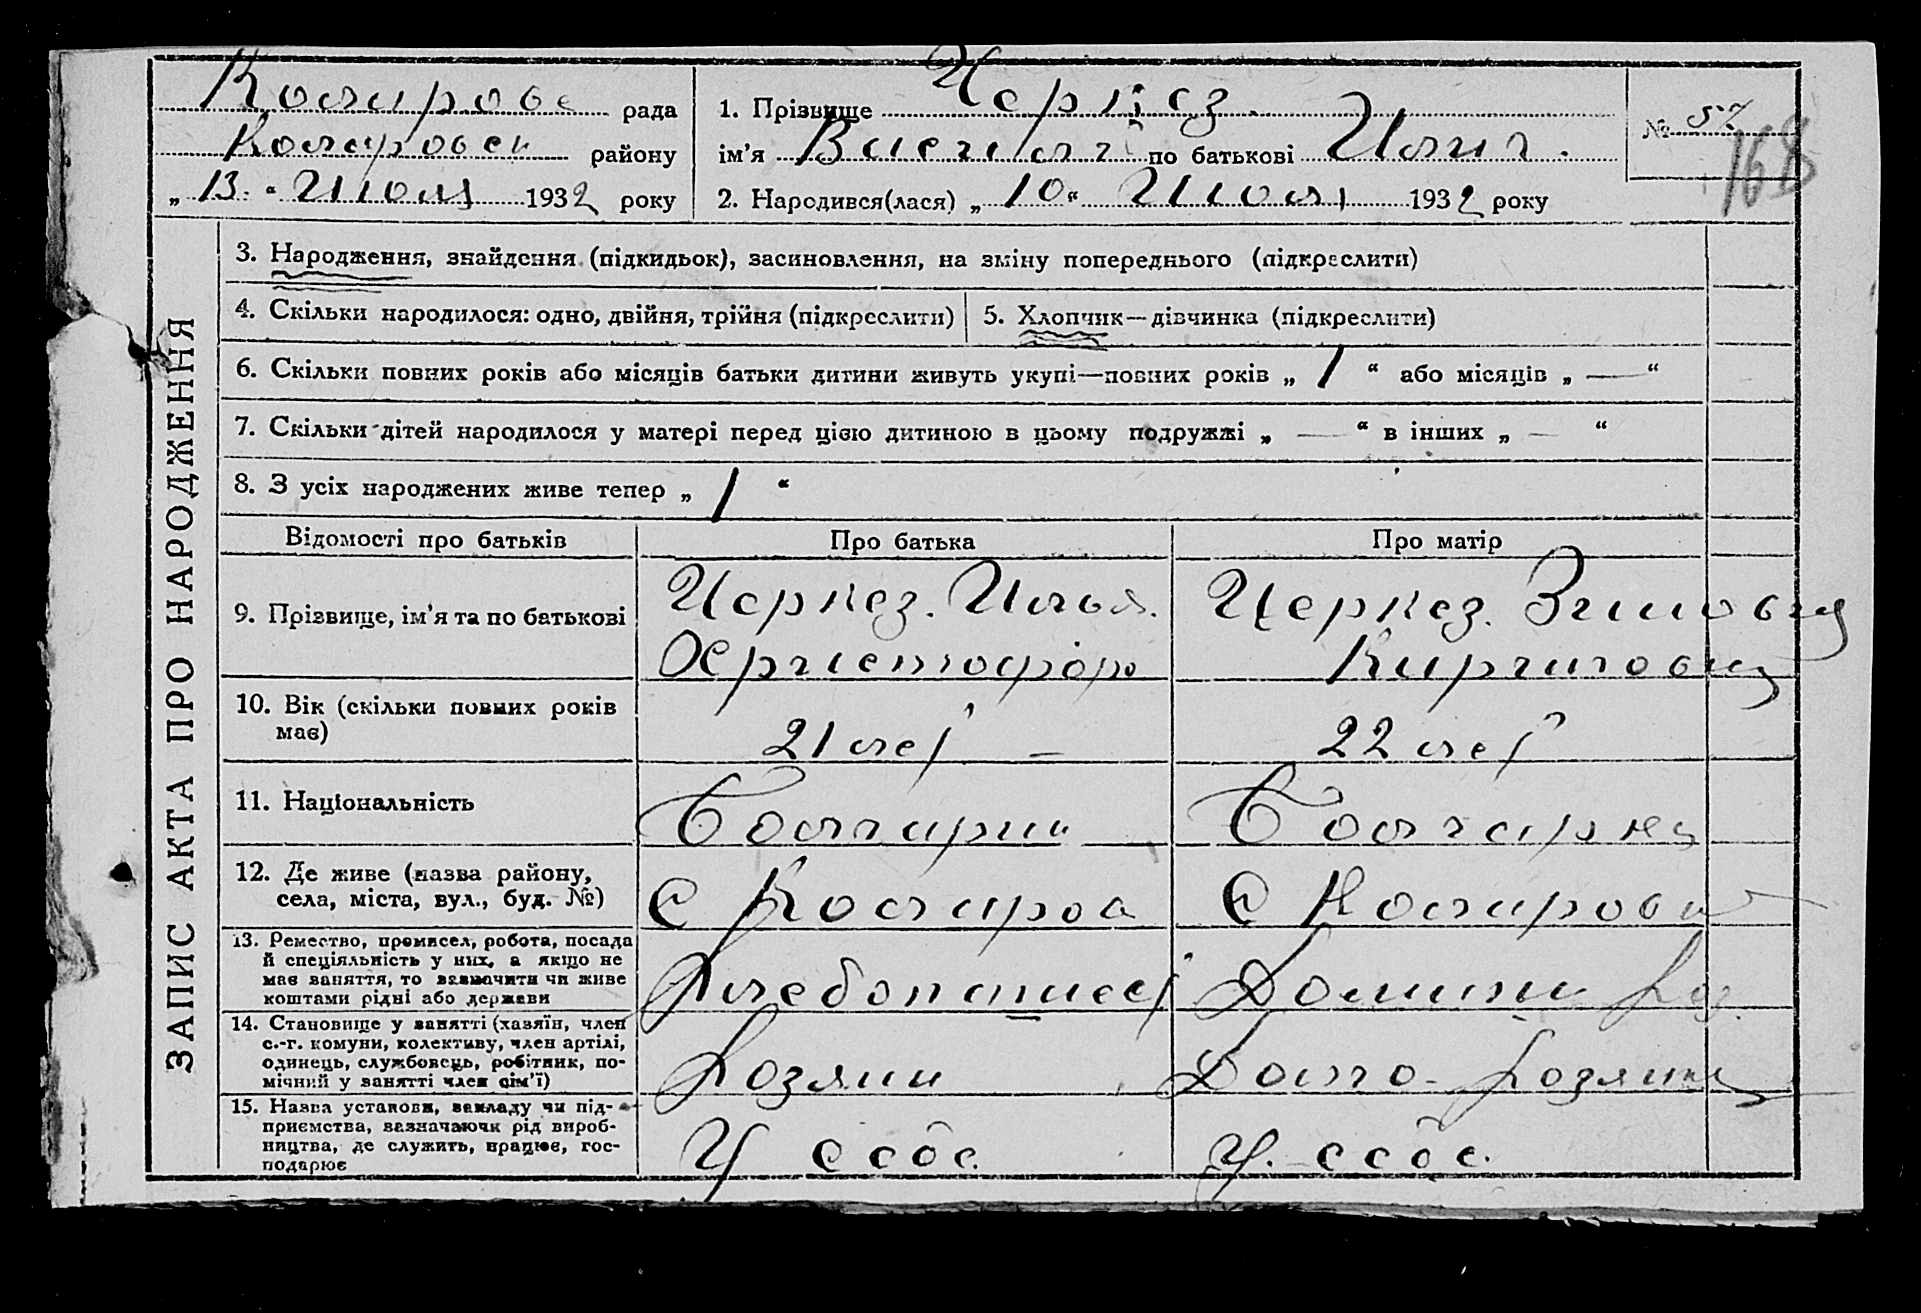 Коларовс рада
Коларовск району
„ 13 “ Июля 1932 року
1. Прізвище Черкез.
ім’я Василий по батькові Илич.
2. Народився(лася) „ 10 “ Июля 1932 року
№ 57
168
ЗАПИС АКТА ПРО НАРОДЖЕННЯ
3. Народження, знайдення (підкидьок), засиновлення, на зміну попереднього (підкреслити)
4. Скільки народилося: одно, двійня, трійня (підкреслити)
5. Хлопчик—дівчинка (підкреслити)
6. Скільки повних років або місяців батьки дитини живуть укупі—повних років „ 1 “ або місяців „ — “
7. Скільки дітей народилося у матері перед цією дитиною в цьому подружжі „ — “ в інших „ — “
8. З усіх народжених живе тепер „ 1 “
Відомості про батьків
Про батька
Про матір
9. Прізвище, ім’я та по батькові
Черкез. Илья.
Христофоро
Черкез. Зиновия
Кириловна
10. Вік (скільки повних років
має)
21 лет —
22 лет
11. Національність
Болгарин
Болгарка
12. Де живе (назва району,
села, міста, вул., буд. №)
С Коларова
С Коларовк
13. Ремество, промисел, робота, посада
й спеціяльність у них, а якщо не
має заняття, то зазначити чи живе
коштами рідні або держави
Хлебопашест
Домашн хоз.
14. Становище у занятті (хазяїн, член
с.-г. комуни, колективу, член артілі,
одинець, службовець, робітник, по-
мічний у занятті член сім’ї)
Хозяин
Дом-хозяйка
15. Назва установи, закладу чи під-
приємства, зазначаючи рід вироб-
ництва, де служить, працює, гос-
подарює
У себе.
У. себе.